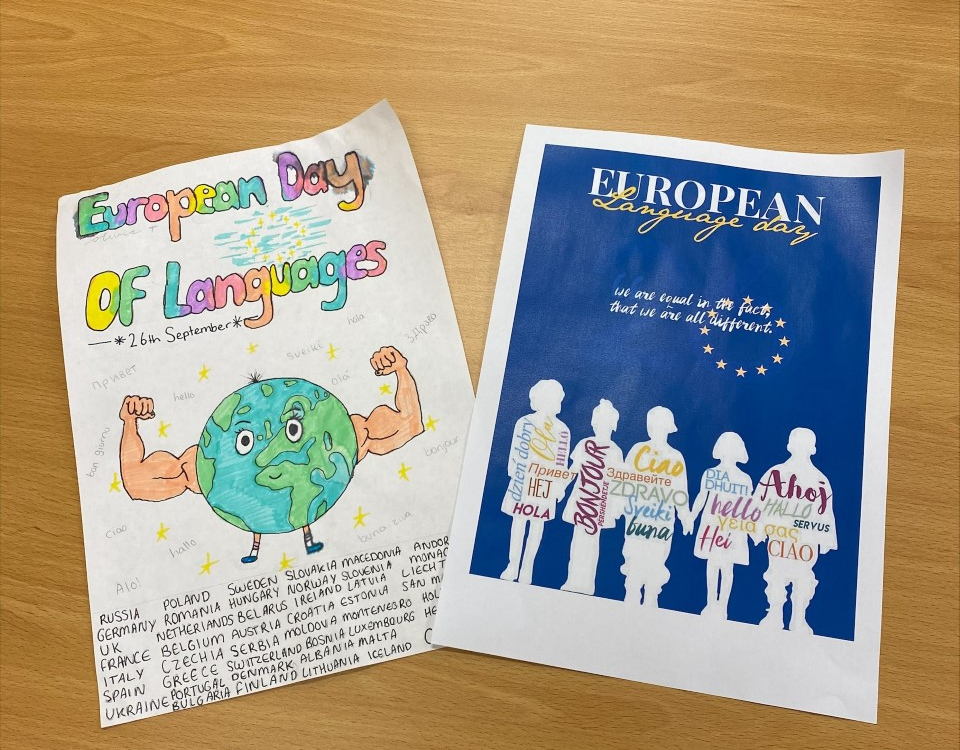 European Day
Of Languages
—*26th September*
hola
привет
sveiki
здраво
hello
olá
bon giurno
bonjour
ciao
hallo
buna ziua
Alo!
RUSSIA POLAND SWEDEN SLOVAKIA MACEDONIA ANDOR
GERMANY ROMANIA HUNGARY NORWAY SLOVENIA MONAC
UK NETHERLANDS BELARUS IRELAND LATVIA LIECHT
FRANCE BELGIUM AUSTRIA CROATIA ESTONIA SAN M
ITALY CZECHIA SERBIA MOLDOVA MONTENEGRO HOL
SPAIN GREECE SWITZERLAND BOSNIA LUXEMBOURG HE
UKRAINE PORTUGAL DENMARK ALBANIA MALTA
BULGARIA FINLAND LITHUANIA ICELAND
EUROPEAN
Language day
we are equal in the fact,
that we are all different.
dzień dobry
Ola
HELLO
Привет
HEJ
HOLA
BONJOUR
PËRSHËNDETJE
Ciao
Здравейте
ZDRAVO
Sveiki
buna
DIA
DHUIT!
hello
γεία σας
Hei
Ahoj
HALLO
SERVUS
CIAO